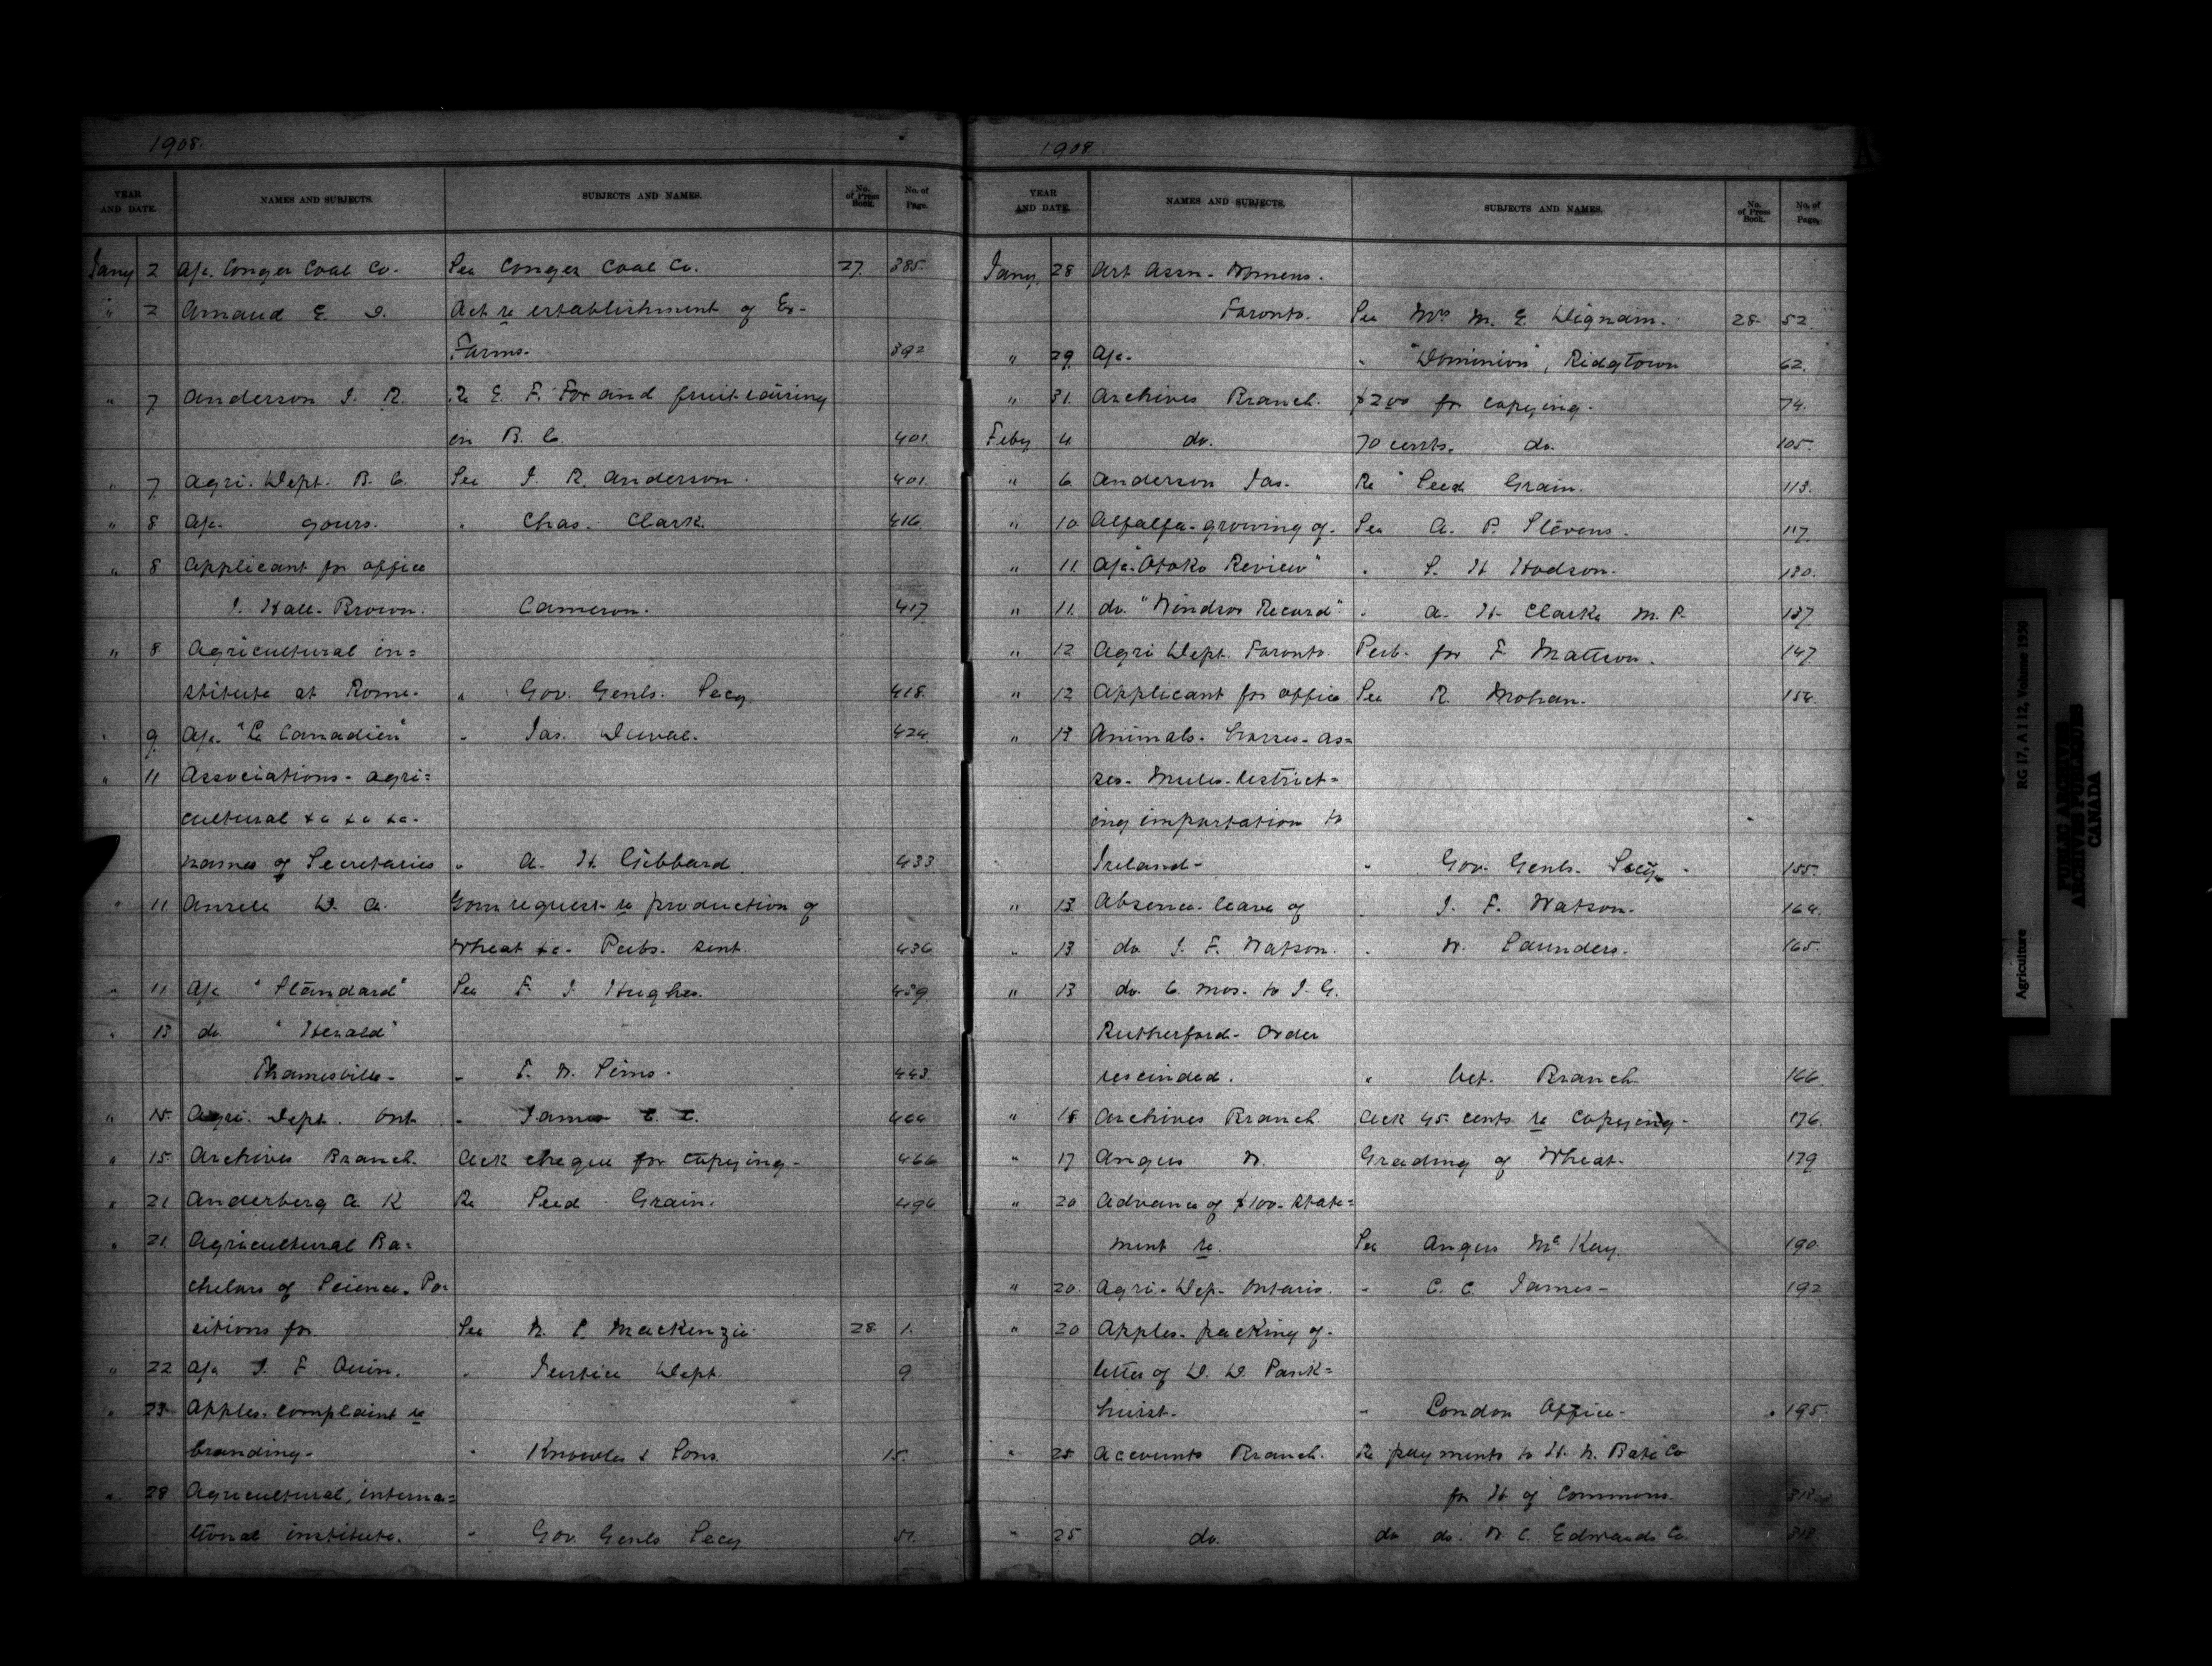 1908.
YEAR AND DATE. NAMES AND SUBJECTS. SUBJECTS AND NAMES. No. of Press Book. No. of Page.
Jany 2 A/c. Conger Coal Co. See Conger Coal Co. 27. 385.
" 2 Arnaud E. D. Act re establishment of Ex-
Farms. 392
" 7 Anderson J. R. Re E. F. Fox and fruit raising
in B. C. 401.
" 7 Agri. Dept. B. C. See J. R. Anderson. 401.
" 8 A/c. yours. " Chas. Clark. 416.
" 8 Applicant for office
J. Hall-Brown. Cameron. 417
" 8 Agricultural in=
stitute at Rome. " Gov. Genls. Secy. 418.
" 9 A/c. "Le Canadien" " Jas. Duval. 424
" 11 Associations - agri=
cultural &c &c &c-
names of Secretaries " A. H. Gibbard 433
" 11 D. A. request re production of
Wheat &c- Pubs. sent. 436
" 11 A/c "Standard" See F. J. Hughes. 439
" 13 do "Herald"
Thamesville- " F. W. Sims. 443.
" 15. Agri. Dept. Ont. " James C. C. 464
" 15. Archives Branch. Ack cheque for copying- 466
" 21 Anderberg A. K Re Seed Grain. 496
" 21. Agricultural Ba=
chelors of Science. Po=
sitions for See W. P. Mackenzie 28. 1.
" 22 A/c J. F. Quin. " Justice Dept. 9
" 23 Apples. complaint re
branding- " Knowles & Sons. 15.
" 28 Agricultural, interna=
tional institute. " Gov. Genls Secy 51.
1908
YEAR AND DATE. NAMES AND SUBJECTS. SUBJECTS AND NAMES. No. of Press Book. No. of Page.
Jany. 28 Art Assn. Womens.
Toronto. See Mrs M. E. Dignam. 28. 52.
" 29 A/c. " "Dominion", Ridgtown 62.
" 31. Archives Branch. $2.00 for copying. 74.
Feby 4 do. 70 cents. do. 105.
" 6 Anderson Jas. Re Seed Grain. 113.
" 10 Alfalfa-growing of. See A. P. Stevens. 117.
" 11. A/c. "Otoko Review" " S. H. Hodson. 130.
" 11. do. "Windsor Record" " A. H. Clarke M. P. 137
" 12 Agri Dept. Toronto. Pub. for F. Mattson. 147
" 12 Applicant for office See R. Mohan. 154.
" 13 Animals. horses-as=
ses. Mules. restrict=
ing importation to
Ireland- " Gov. Genls. Secy. 155.
" 13 Absence leave of " J. F. Watson. 164.
" 13 do J. F. Watson. " W. Saunders. 165.
" 13 do. 6 mos. to J. G.
Rutherford- Order
rescinded. " Vet. Branch 166.
" 15 Archives Branch. Ack 45 cents re copying- 176.
" 17 Angus W. Grading of Wheat- 179
" 20 Advance of $100- state=
ment re. See Angus McKay 190
" 20. Agri. Dep. Ontario. " C. C. James- 192
" 20 Apples- packing of-
letter of D. D. Pank=
hurst- " London Office- 195.
" 25 Accounts Branch. Re payments to H. N. Bate Co
for H of Commons.
" 25 do. do do. W. C. Edwards Co. 218.
Agriculture RG 17, A I 12, Volume 1950
PUBLIC ARCHIVES
ARCHIVES PUBLIQUES
CANADA